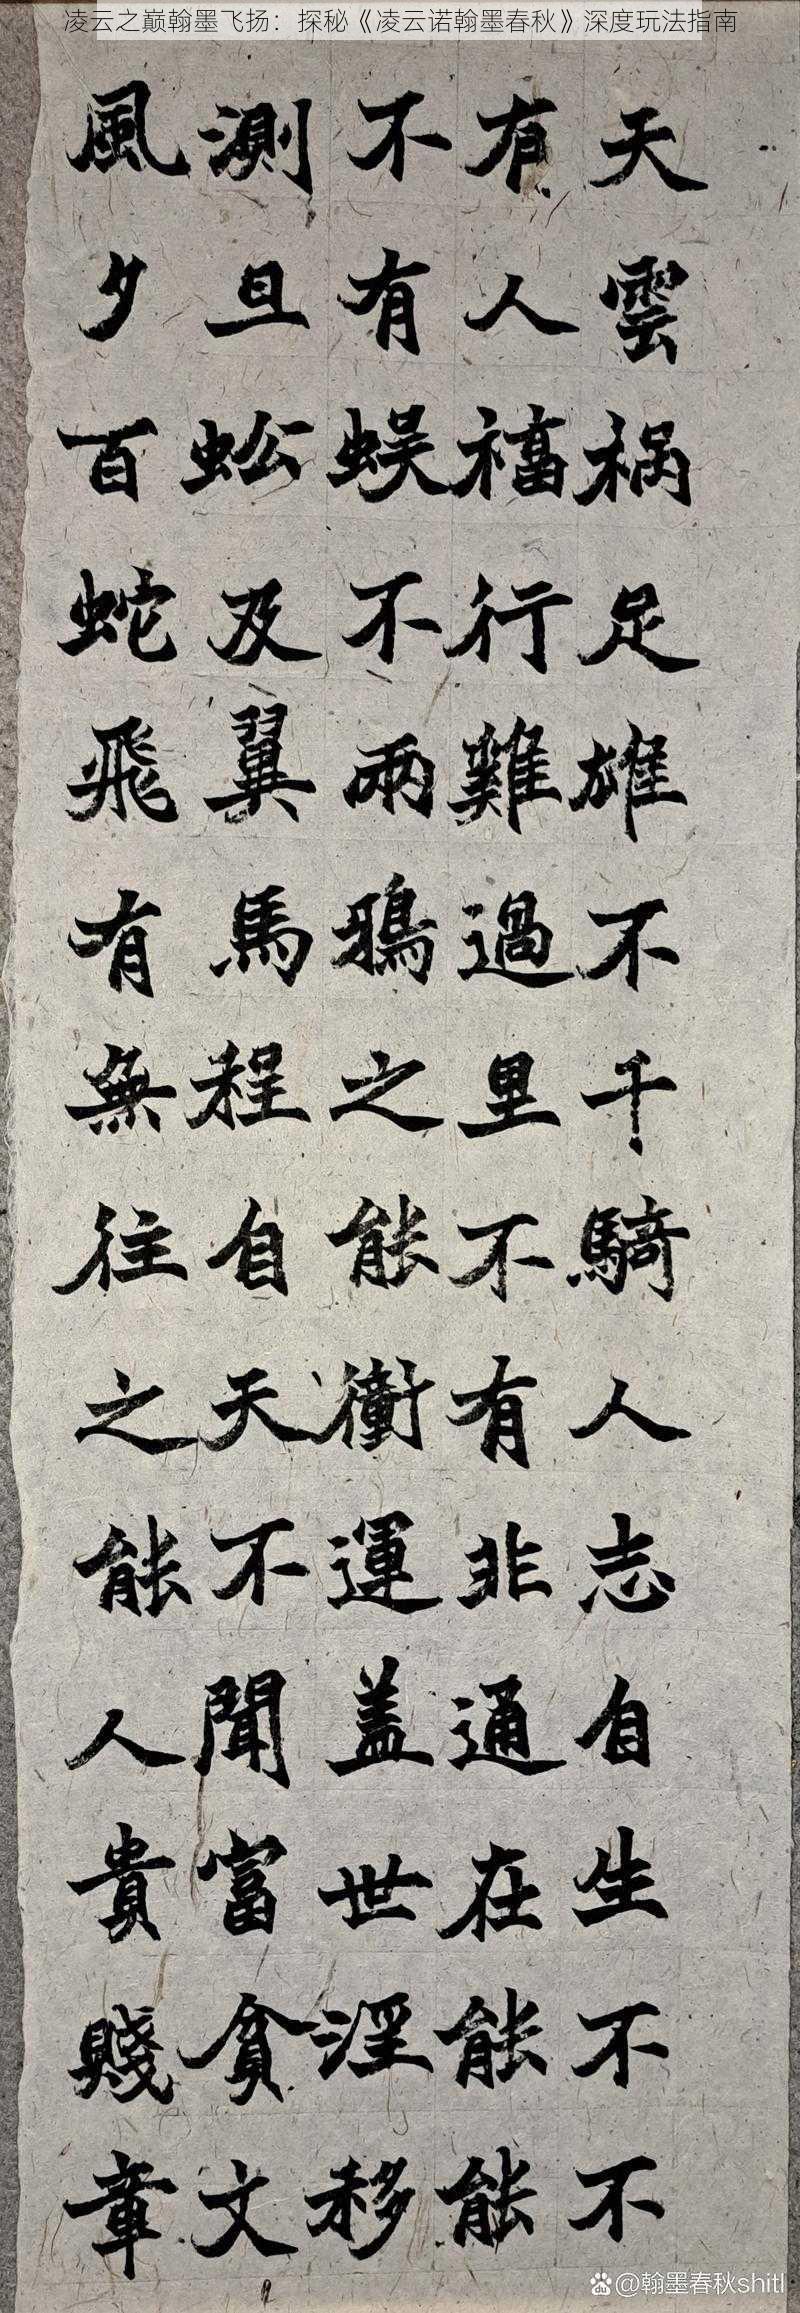 凌云之巅翰墨飞扬：探秘《凌云诺翰墨春秋》深度玩法指南
天有不測風
雲人有旦夕
禍福蜈蚣百
足行不及蛇
雄雞兩翼飛
不過鴉馬有
千里之程無
騎不能自往
人有衝天之
志非運不能
自通蓋聞人
生在世富貴
不能淫貧賤
不能移文章
@翰墨春秋shitl